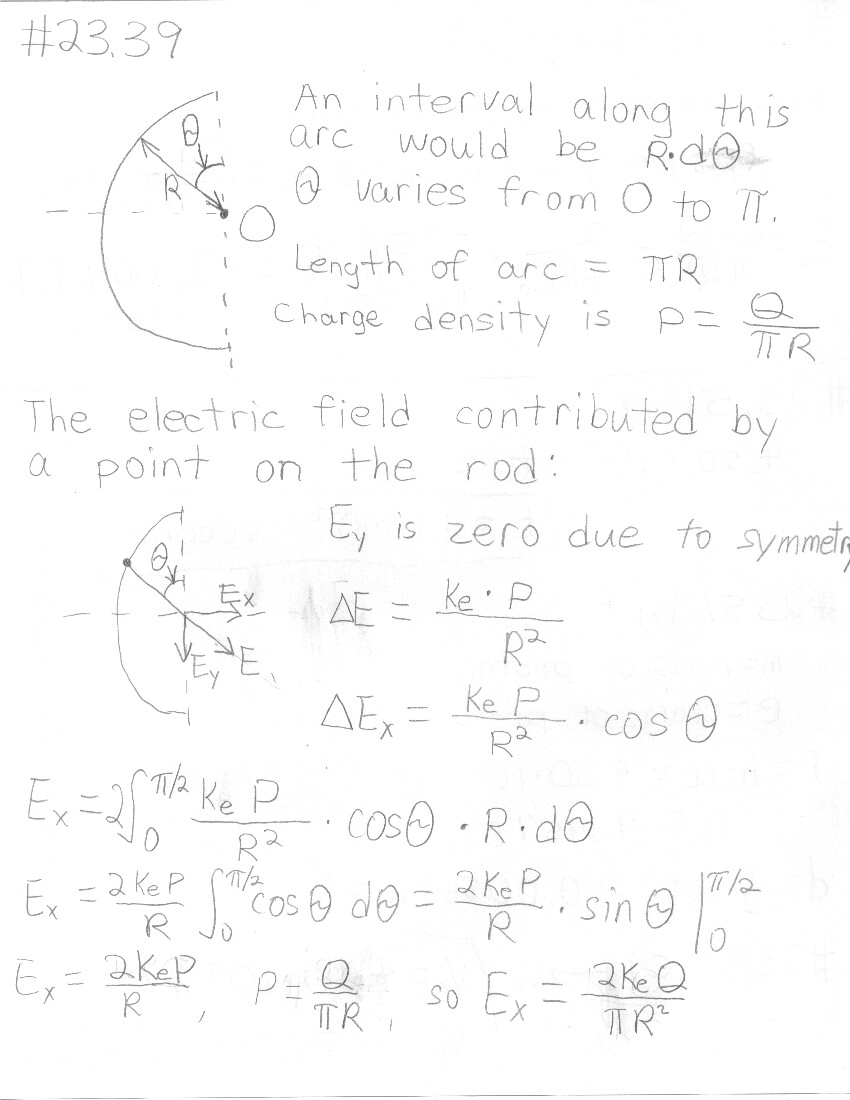 #23.39
An interval along this
arc would be R·dθ
θ varies from 0 to π.
Length of arc = πR
Charge density is P = Q/πR
θ
R
O
The electric field contributed by
a point on the rod:
Ey is zero due to symmetry
θ
Ex
Ey
E
ΔE = Ke·P/R²
ΔEx = Ke P/R² · cos θ
Ex = 2∫₀^π/2 Ke P/R² · cosθ · R·dθ
Ex = 2KeP/R ∫₀^π/2 cosθ dθ = 2KeP/R · sin θ |₀^π/2
Ex = 2KeP/R , P = Q/πR , so Ex = 2KeQ/πR²